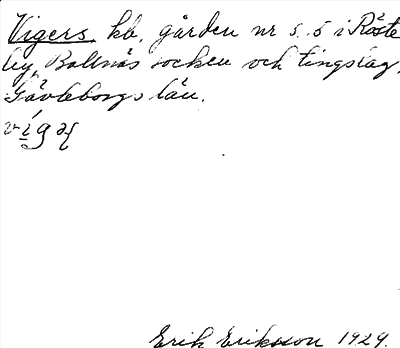 Vigers kb. gården nr s. 5 i Röste
by, Bollnäs socken och tingslag,
Gävleborgs län.
Erik Eriksson 1929.